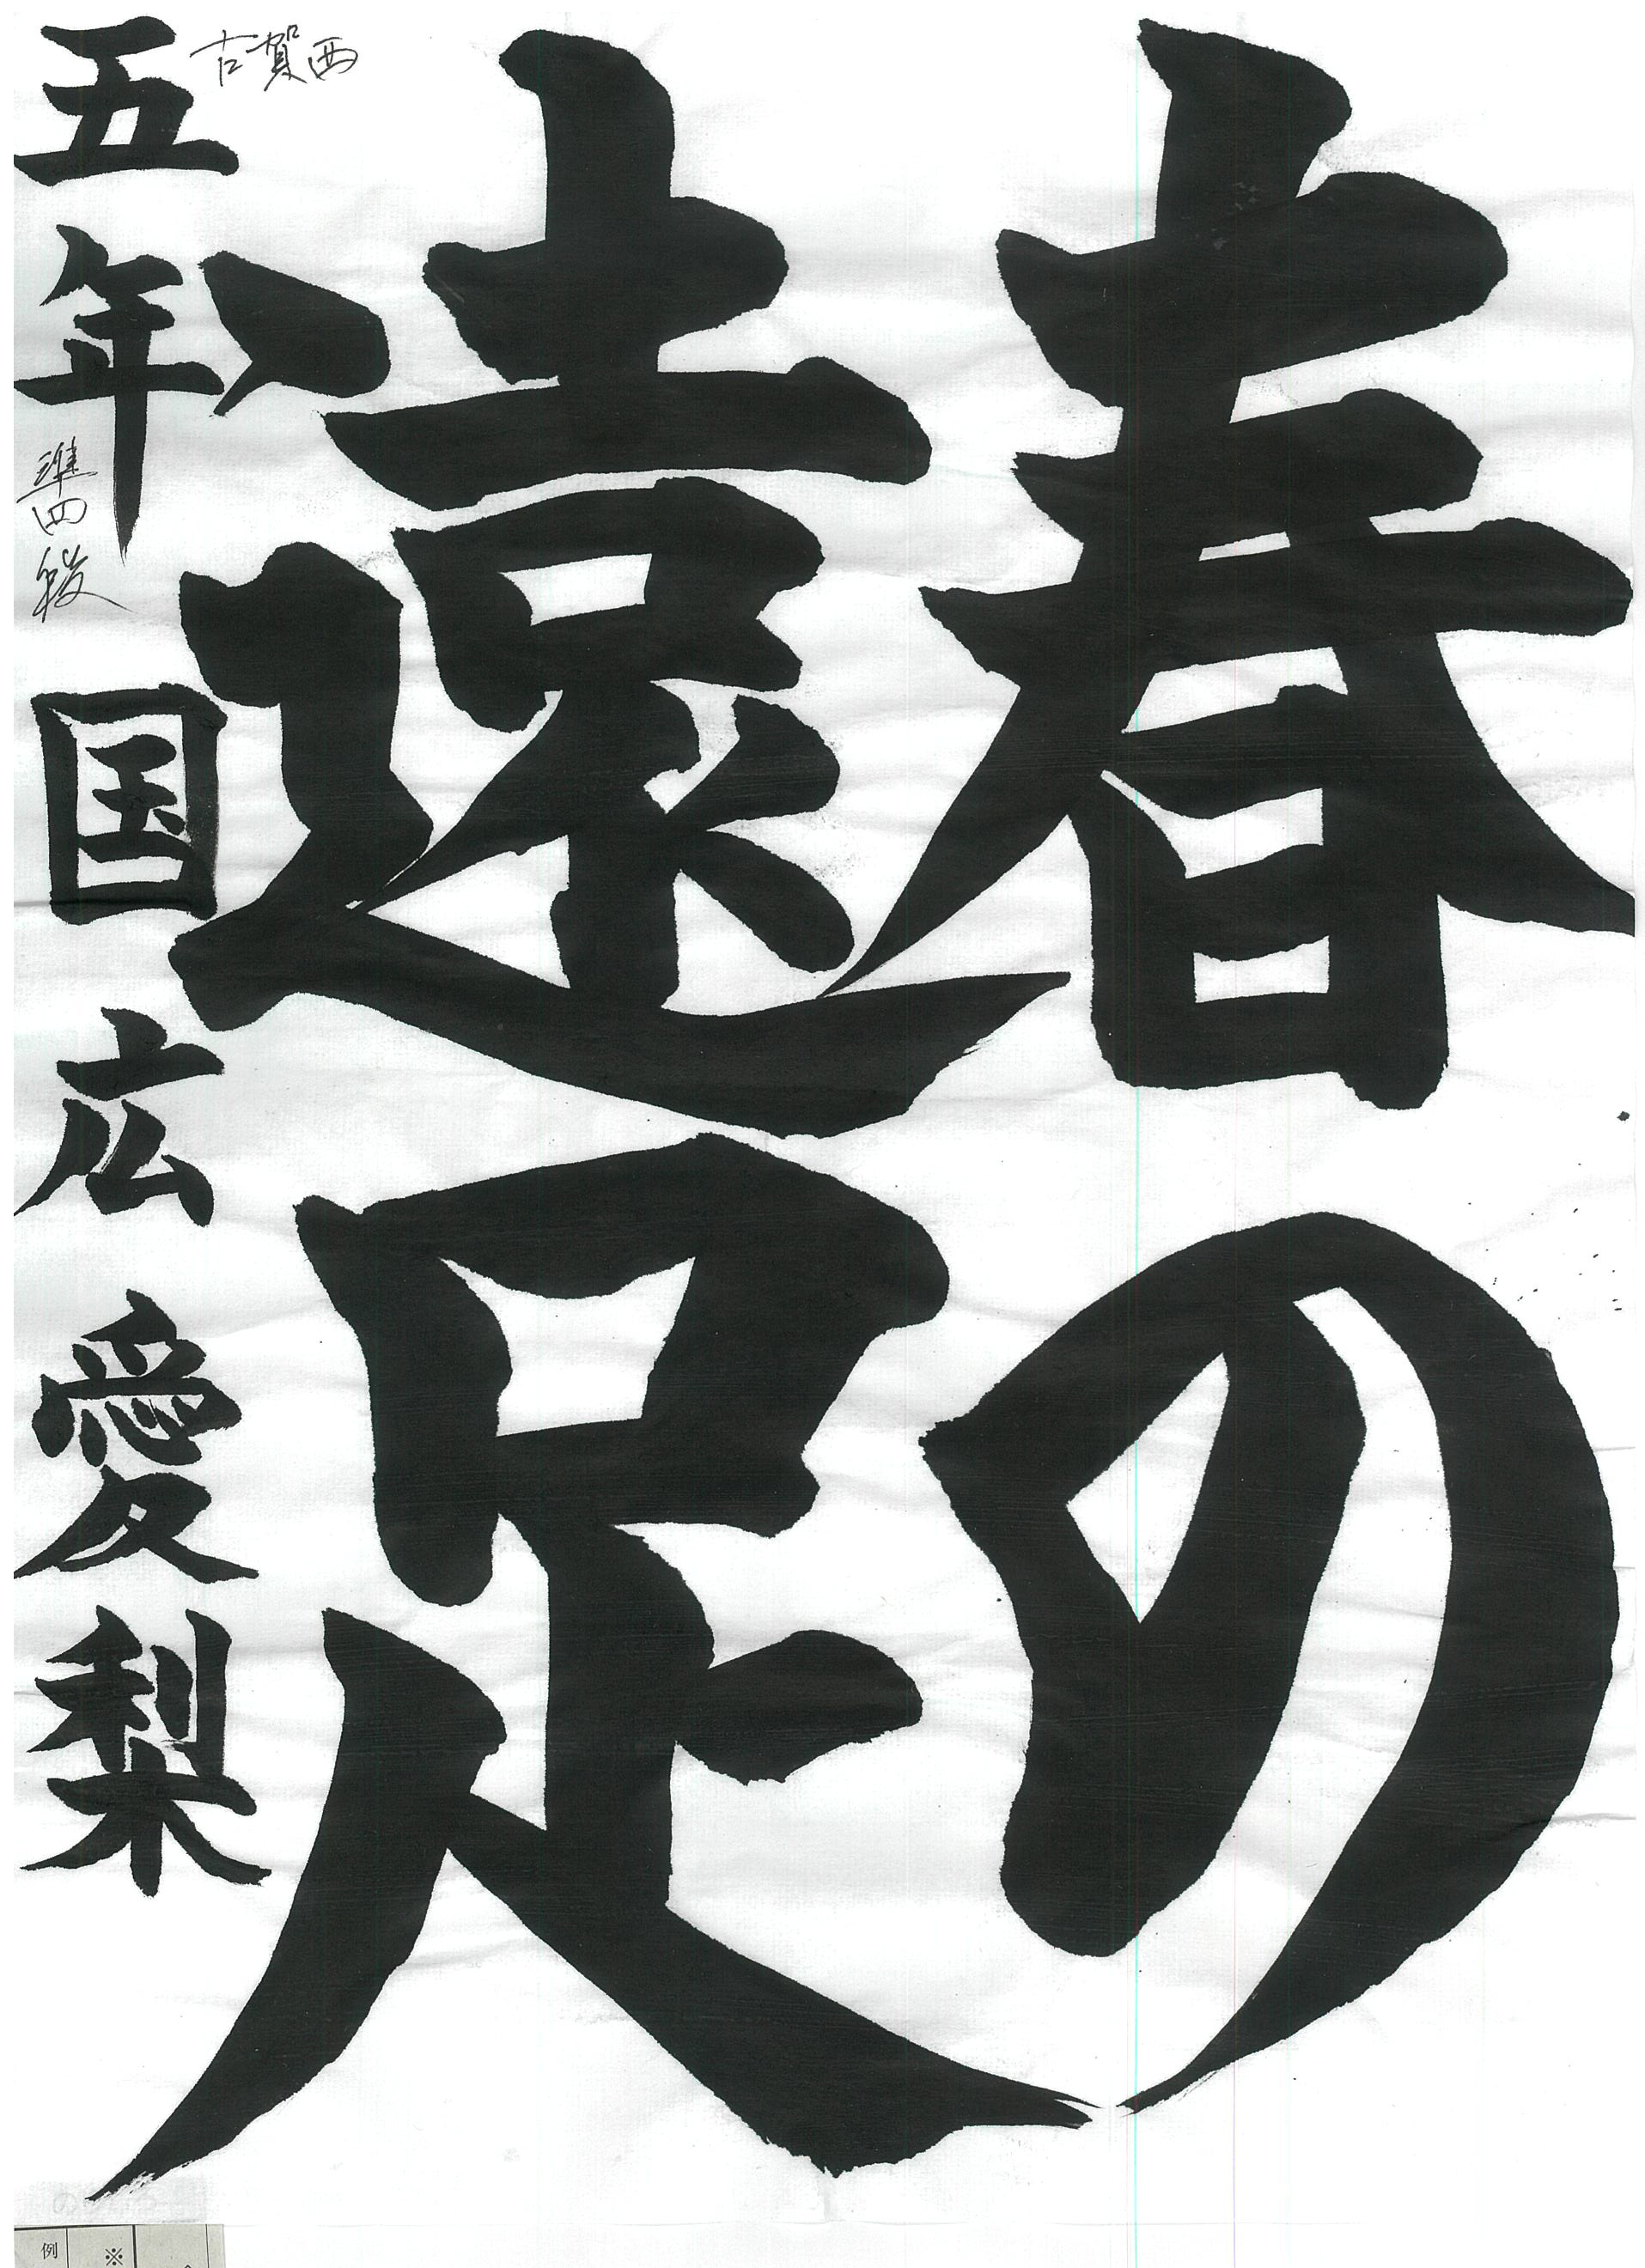 春の
遠足
古賀西
五年 準四段 国広愛梨
例
※